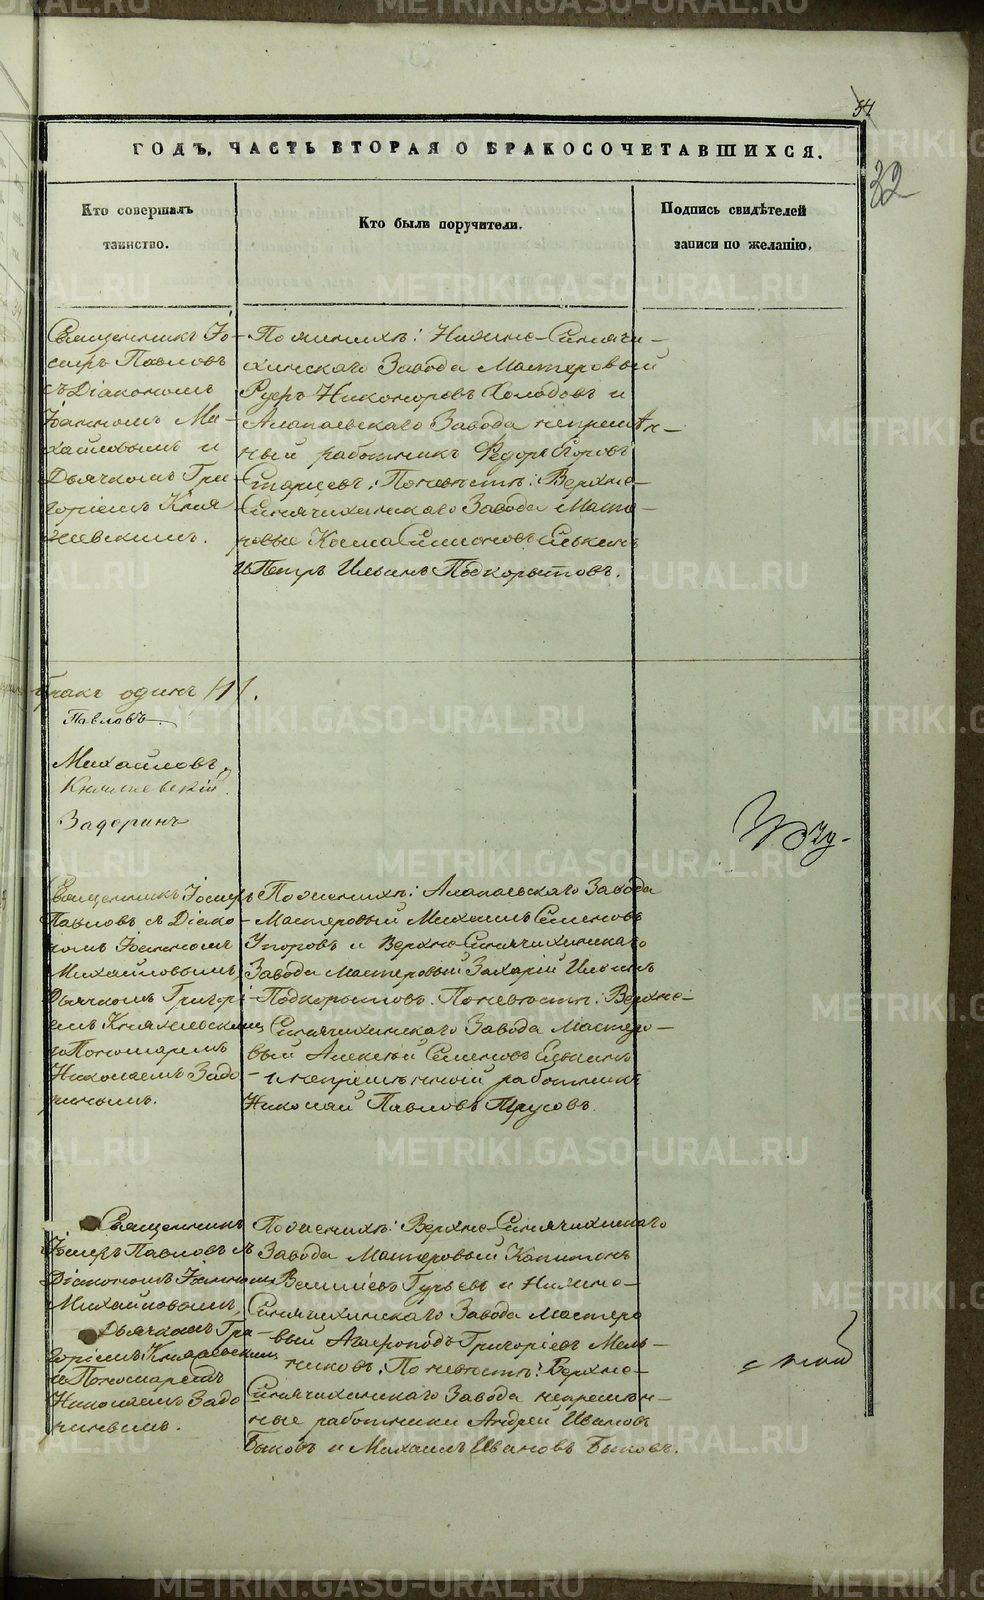 54
32
ГОДЪ. ЧАСТЬ ВТОРАЯ О БРАКОСОЧЕТАВШИХСЯ.
Кто совершалъ
таинство.
Кто были поручители.
Подпись свидѣтелей
записи по желанію.
Священникъ Іо-
сифъ Павловъ
съ Діакономъ
Іоанномъ Ми-
хайловымъ и
Дьячкомъ Гри-
горіемъ Княж
евскимъ.
По женихѣ: Нижне-Синячи-
хинскаго Завода Мастеровый
Никоноровъ Холодовъ и
Алапаевскаго Завода непремѣн-
ный работникъ Федоръ Егоровъ
Старцевъ; По невѣстѣ: Верхне-
Синячихинскаго Завода Масте-
ровые Косма Симоновъ Елькинъ
и Петръ Ильинъ Подкорытовъ.
бракъ одинъ /1/.
Павловъ.
Михайловъ
Княжевскій.
Задоринъ
Священникъ Іосифъ
Павловъ съ Діако-
номъ Іоанномъ
Михайловымъ,
Дьячкомъ Григорі-
емъ Княжевскимъ
и Пономаремъ
Николаемъ Задо
ринымъ.
По женихѣ: Алапаевскаго Завода
Мастеровый Михаилъ Семеновъ
Упоровъ и Верхне-Синячихинскаго
Завода Мастеровый Захарій Ильинъ
Подкорытовъ. По невѣстѣ: Верхне-
Синячихинскаго Завода Мастеро-
вый Алексѣй Семеновъ Елькинъ
и непремѣнный работникъ
Николай Павловъ Трусовъ.
Священникъ
Іосифъ Павловъ съ
Діакономъ Іоанномъ
Михайловымъ,
Дьячкомъ Гри-
горіемъ Княжевскимъ
и Пономаремъ
Николаемъ Задо
ринымъ.
По женихѣ: Верхне-Синячихинскаго
Завода Мастеровый Капитонъ
Гурьевъ и Нижне-
Синячихинскаго Завода Мастеро
вый Агафоподъ Григоріевъ Мель-
никовъ; По невѣстѣ: Верхне-
Синячихинскаго Завода непремѣн-
ные работники Андрей Ивановъ
Быковъ и Михаилъ Ивановъ Быковъ.
METRIKI.GASO-URAL.RU